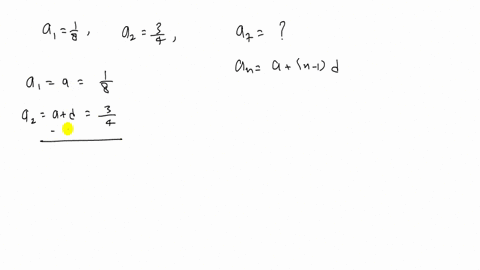 a₁ = 1/8, a₂ = 3/4, a₇ = ?
aₙ = a + (n-1) d
a₁ = a = 1/8
a₂ = a+d = 3/4
-